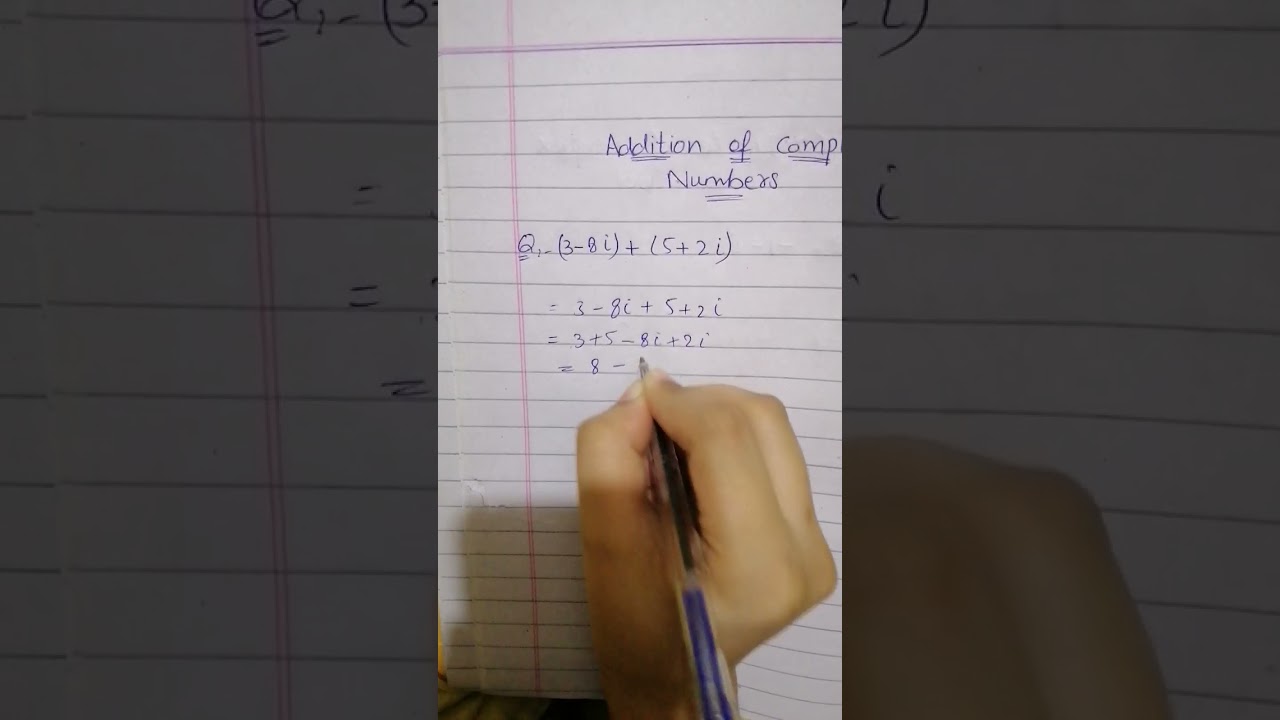 Addition of Comp
Numbers
Q,- (3-8i) + (5+2i)
= 3-8i + 5+2i
= 3+5-8i+2i
= 8 -